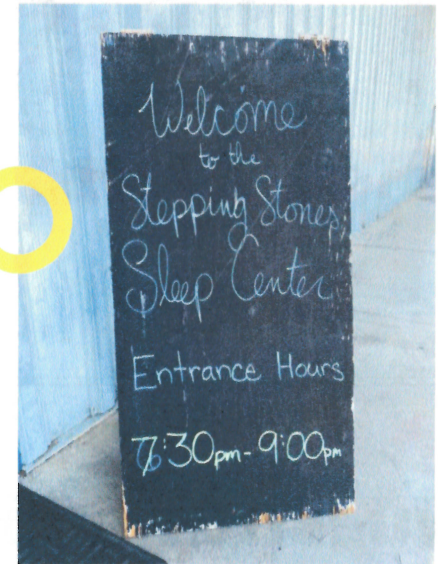 Welcome
to the
Stepping Stones
Sleep Center
Entrance Hours
:30pm-9:00pm